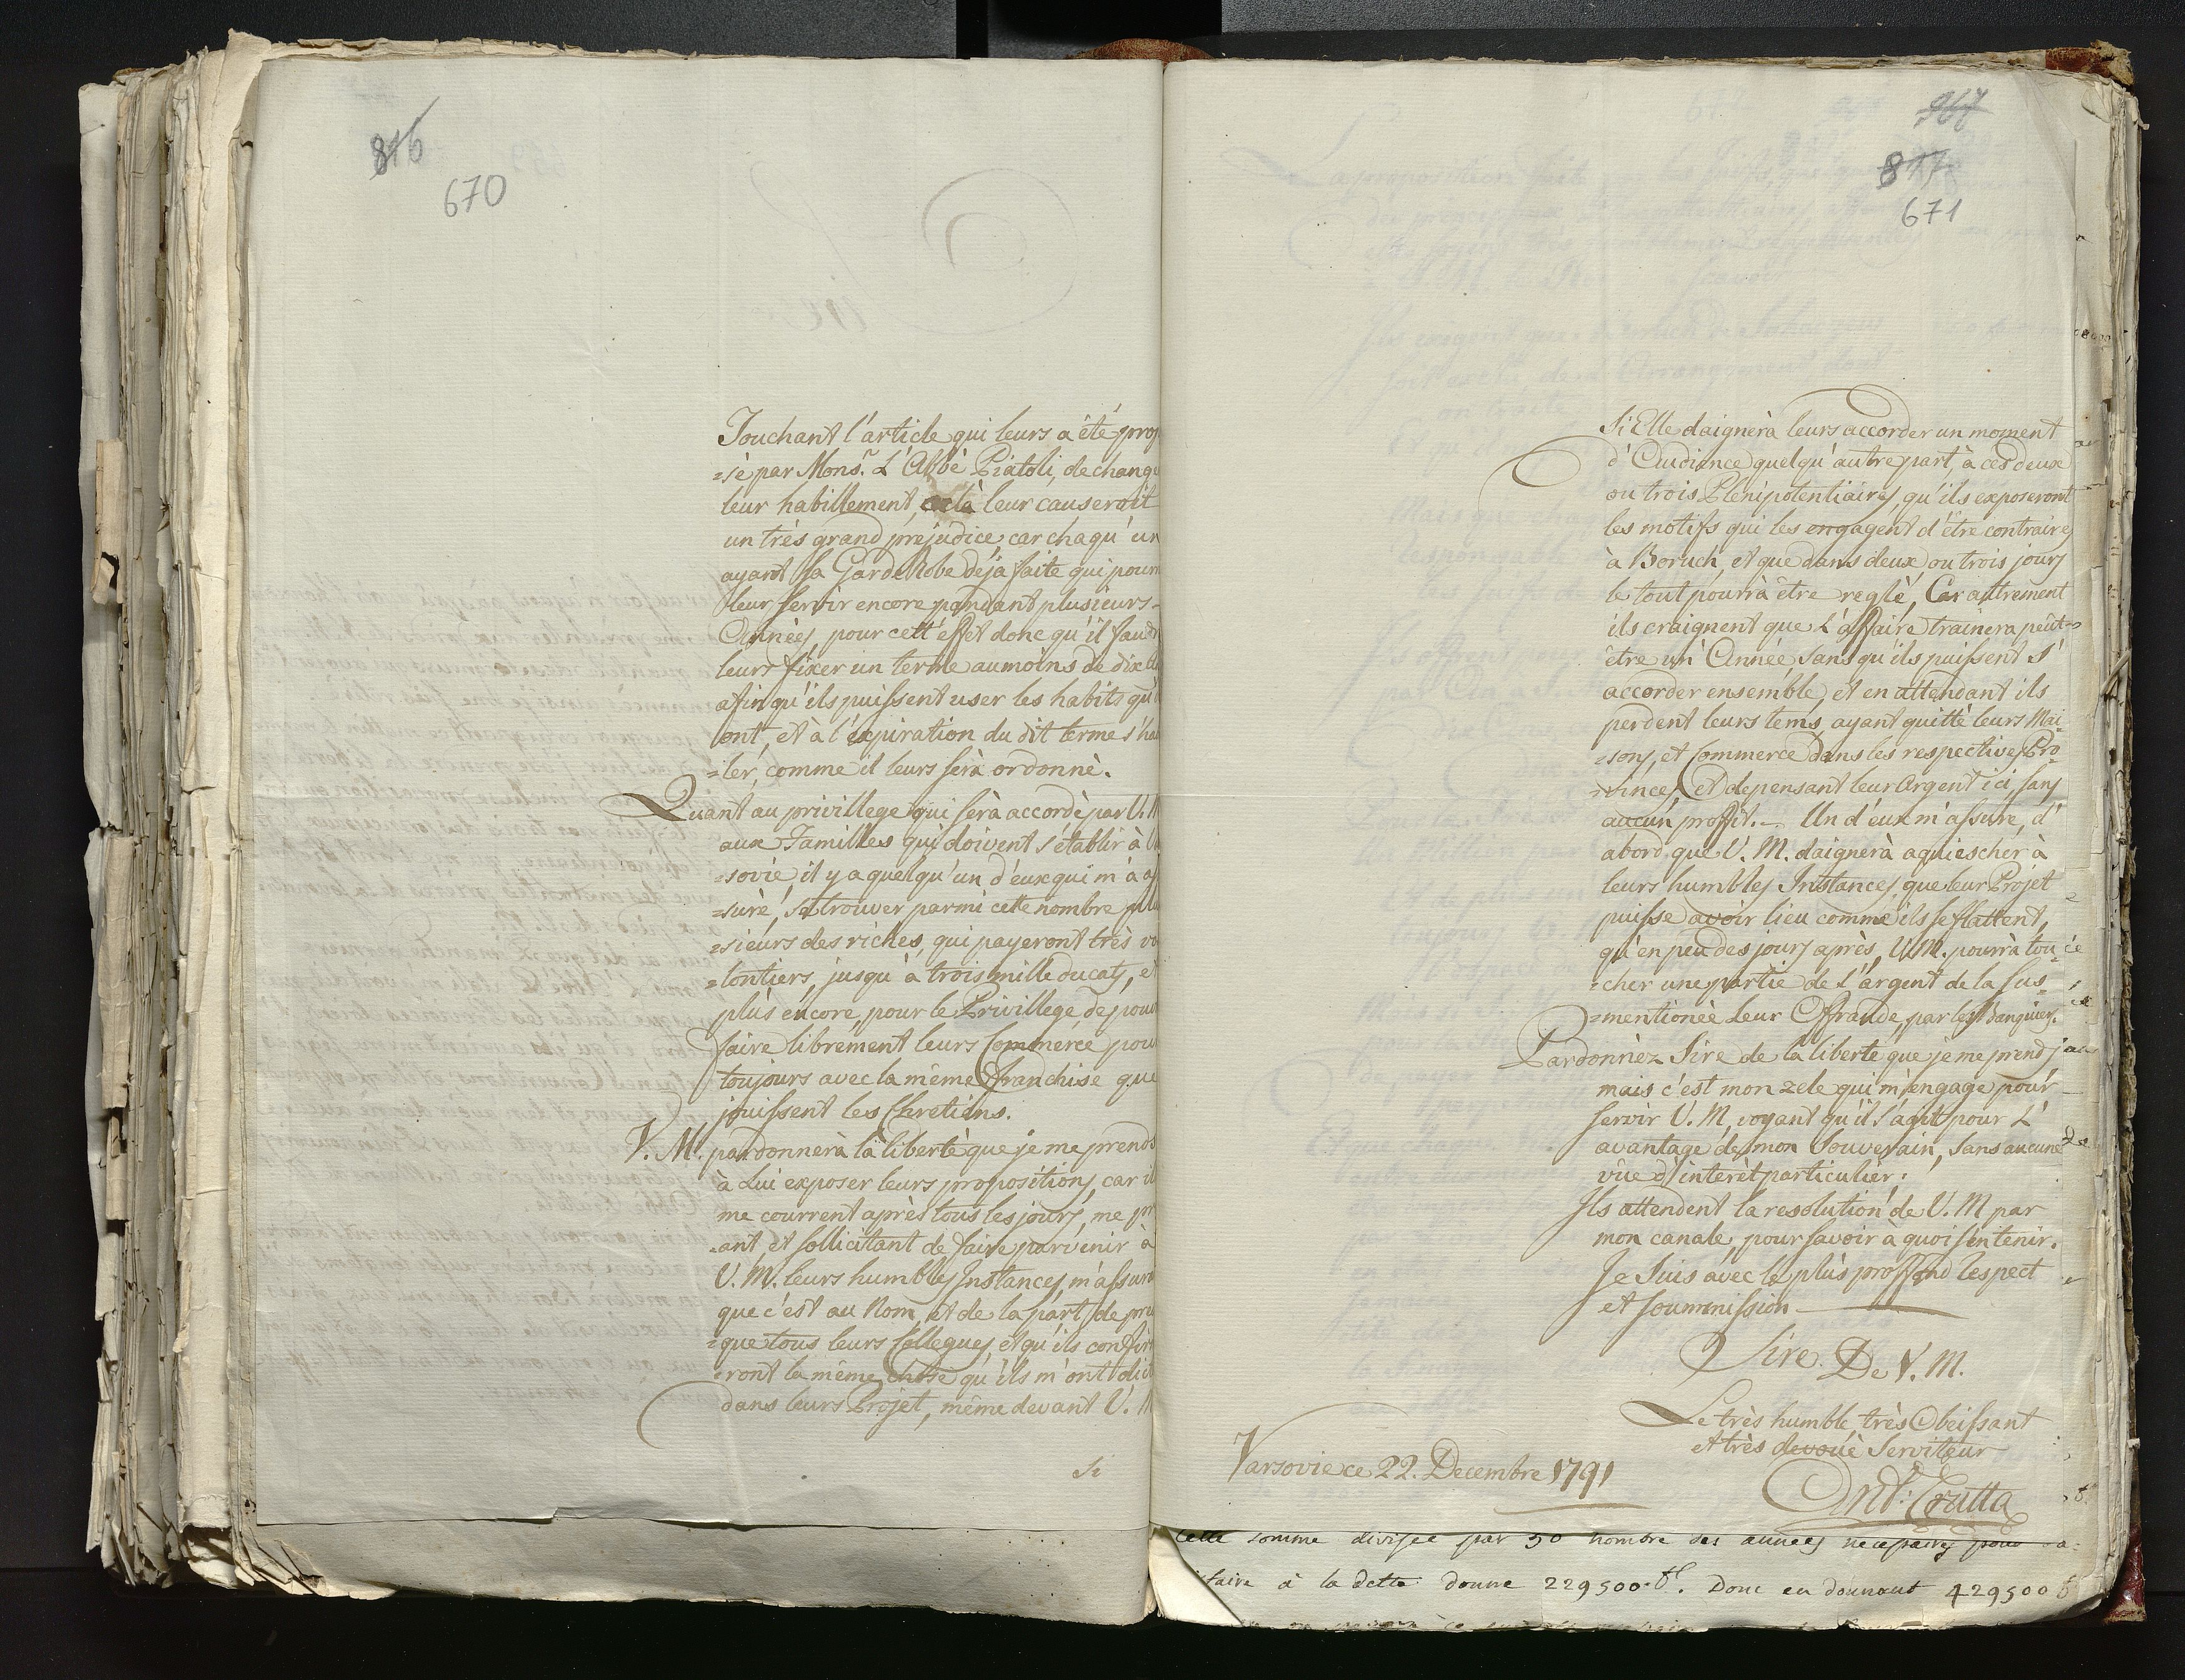 816
670
Touchant l'article qui leurs a êté prop
=sè par Mons.r L'Abbè Piatoli, de change
leur habillement, celà leur causerait
un très grand prejudice car chaqu'un
ayant sa GardeRobe déja faite qui pourr
leur servir encore pendant plusieurs
Annèes, pour cett'effet donc qu'il faudr
leurs fixer un terme aumoins de dix
afin qu'ils puissent user les habits qu'
ont, et à l'éxpiration du dit terme s'ha
=ler, comme il leurs serà ordonnè.
Quant au privillege qui serà accordè par V. M
aux Familles qui doivent s'établir à
=sovie, il y a quelqu'un d'eux qui m'à as
=suré, se trouver parmi cette nombre plu
=sieurs des riches, qui payeront très vo
=lontiers, jusqu'à trois mille ducats, et
plùs éncore, pour le Privillege de pouv
faire librement leurs Commerce pour
toujours avec la même franchise que
jouissent les Chretiens.
V. M. pardonnerà la libertè que je me prends
à Lui exposer leurs propositions, car il
me courrent après tous les jours, me pri
=ant, et sollicitant de faire parvenir à
V. M. leurs humbles Instances, m'assura
que c'est au Nom, et de la part de pre
=que tous leurs Collegues, et qu'ils confir
=ront la même Chose qu'ils m'ont dict
dans leurs Projet, même devant V. M
Si
967
817
671
Si Elle daignerà leurs accorder un moment
d'Audience quelqu'autre part, à ces deux
ou trois Plenipotentiaires, qu'ils exposeront
les motifs qui les engagent d'être contraires
à Boruch, et que dans deux ou trois jours
le tout pourrà être reglè, Car autrement
ils craignent que L'affaire trainera peût=
être un'Année sans qu'ils puissent s'
accorder ensemble, et en attendant ils
perdent leurs tems, ayant quittè leurs Mai
=sons, et Commerce dans les respectives Pro
=vinces, Et depensant leur Argent ici, sans
aucun proffit. — Un d'eux m'assure, d'
abord que V. M. daignerà aquiescher à
leurs humbles Instances, que leur Projet
puisse avoir lieu comme ils se flattent,
qu'en peu des jours après, V. M. pourrà tou
=cher une partie de L'argent de la sus=
=mentionèe Leur Offrande, par les Banquiers.
Pardonnèz Sire de la liberte que je me prends
mais c'est mon zele qui m'engage pour
servir V. M, voyant qu'il s'agit pour L'
avantage de mon Souverain, sans aucune
vüe d'interèt particulièr.
Ils attendent la resolution de V. M par
mon canale, pour savoir à quoi s'en tenir.
Je Suis avec le plùs proffond respect
et soummission
Sire. De V. M.
Le très humble, très Obeissant
et très devouè Serviteur
Ant: Crutta
Varsovie ce 22. Decembre 1791
Cette somme divisée par 50 nombre des années necessaires pour
faire à la dette donne 229500 fl. Donc en donnant 429500 f